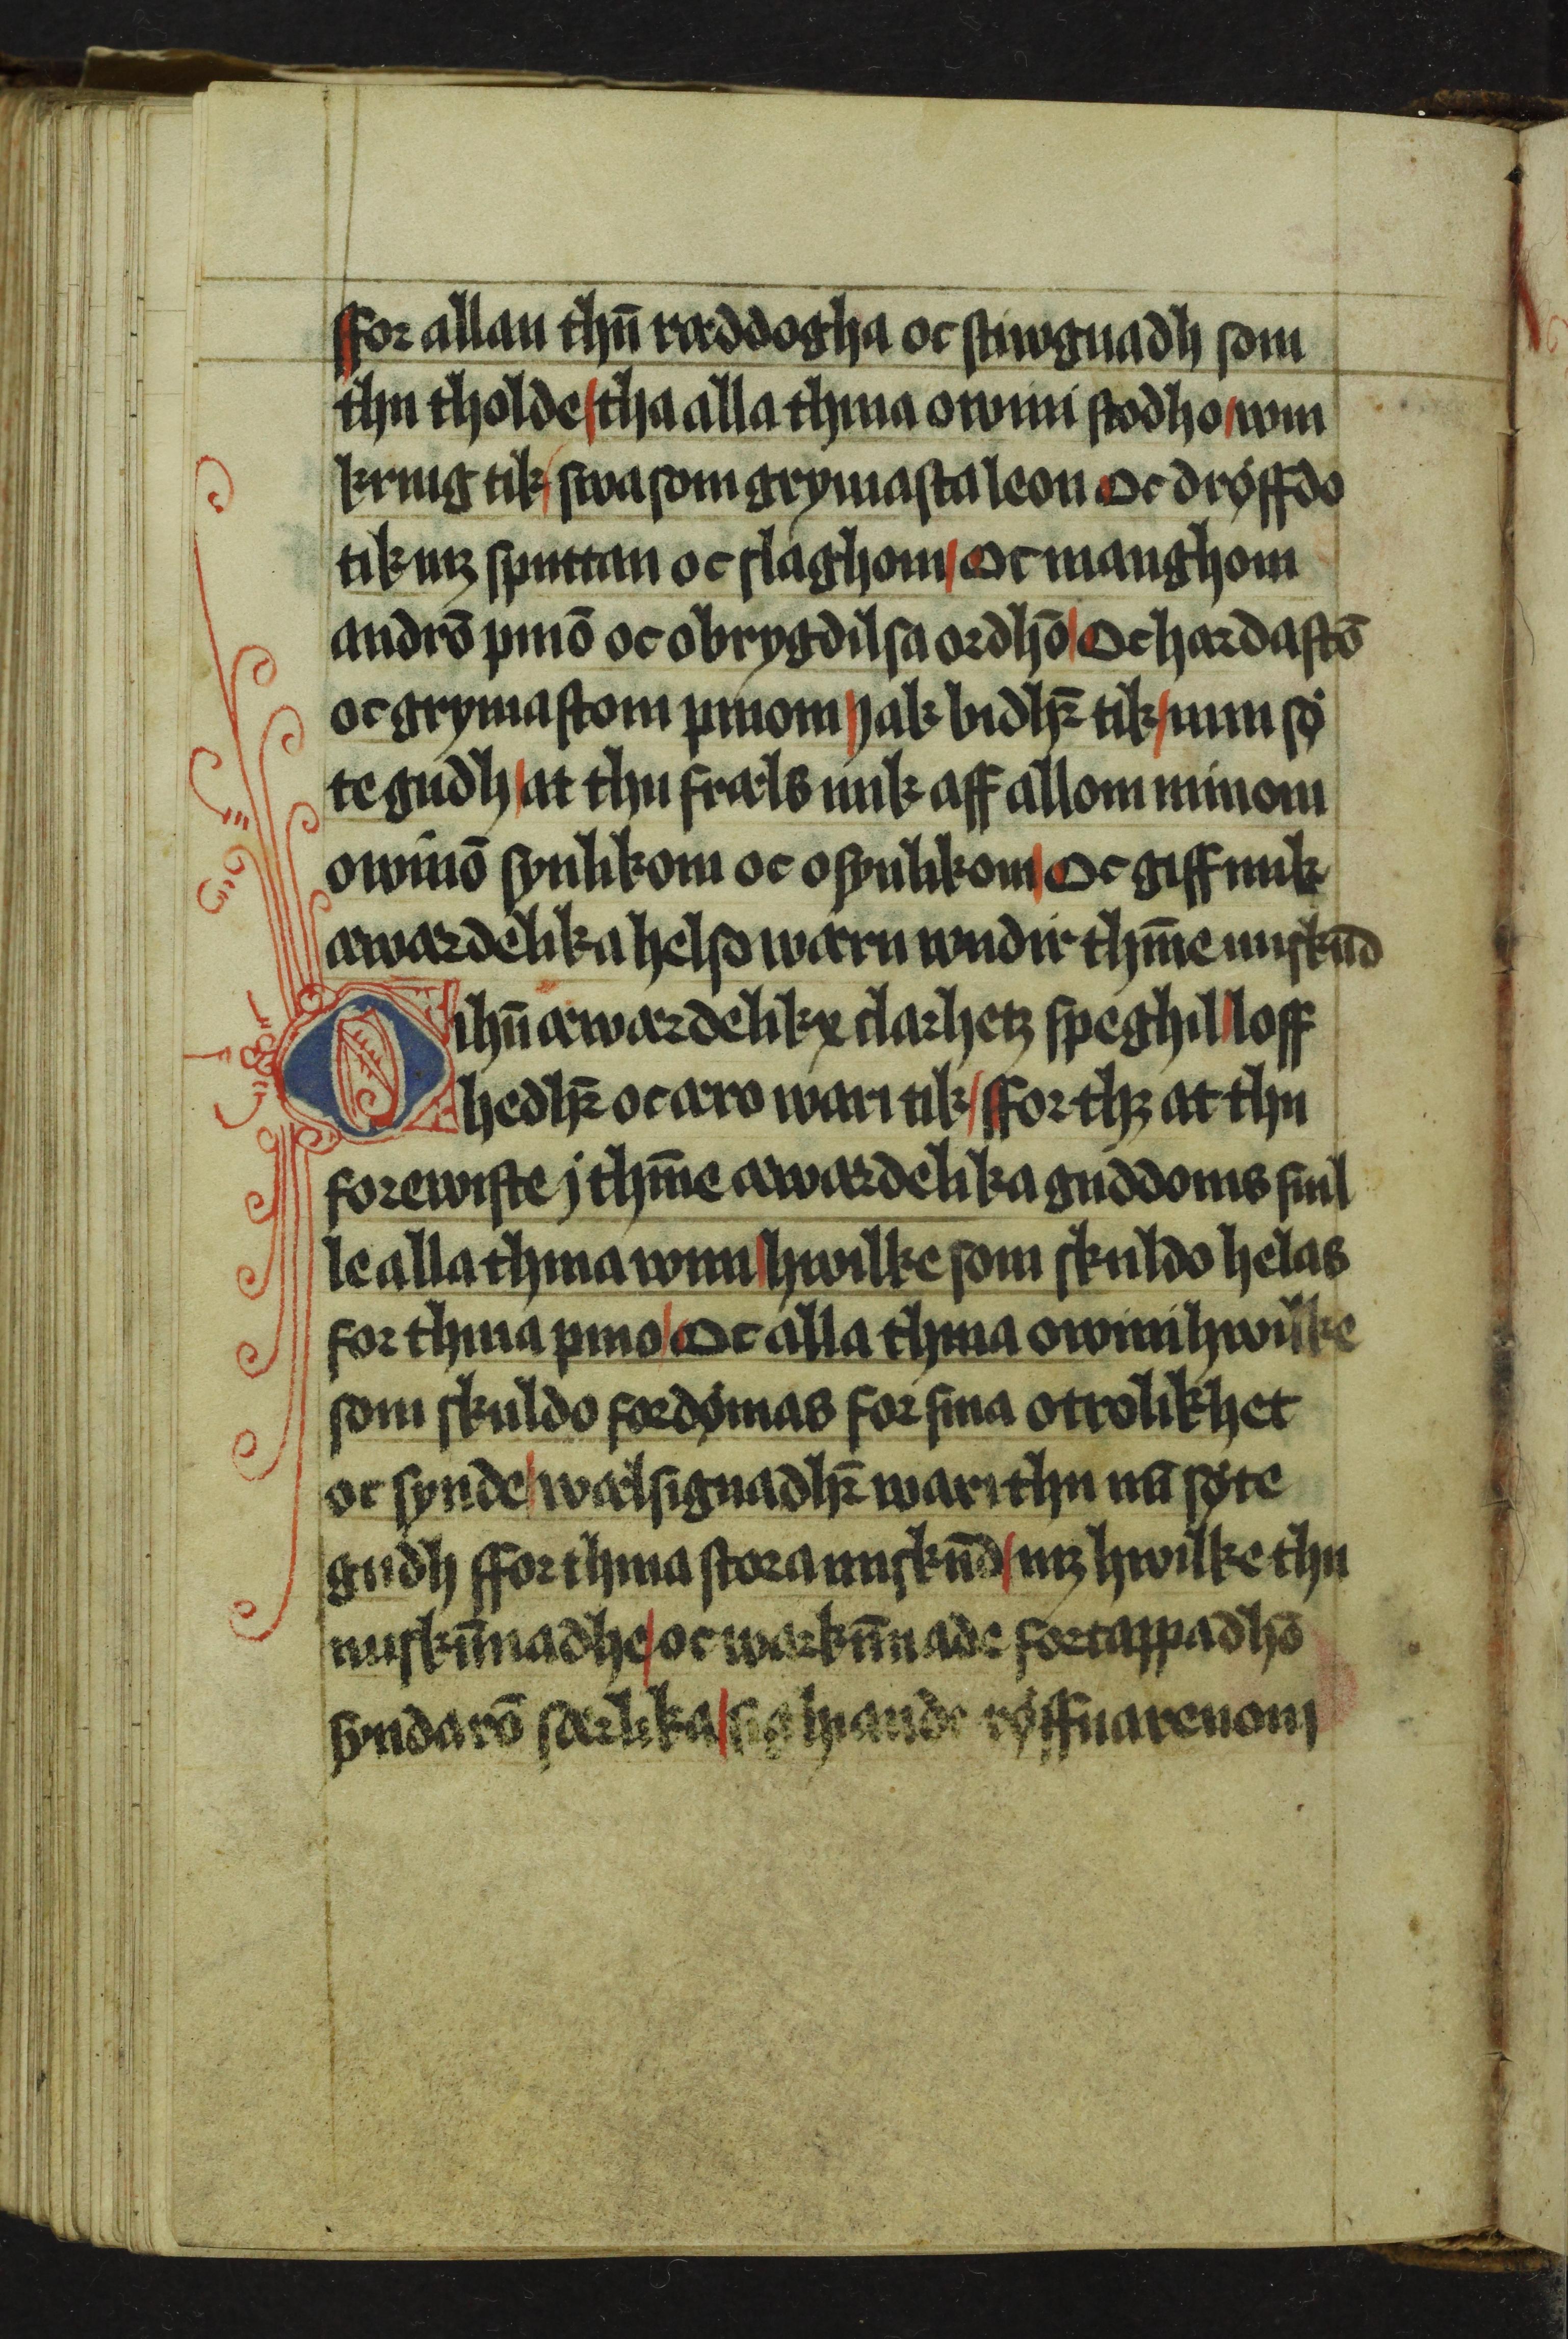 ffor allan thin̄ ræddogha oc stiwgnadh som
thu tholde / tha alla thina owini stodho / wm
kring tik / swa som grymasta leon Oc dröffdo
tik mꝫ sputtan oc slaghom / Oc manghom
andrō pinō oc obrygdilsa ordhō / Oc hardastō
oc grymastom pinom / Jak bidhr̄ tik / min sö
te gudh / at thu fræls mik aff allom minom
owinō synlikom oc osynlikom / Oc giff mik
æwærdelika helso wærn wndir thin̄e miskūd
O ihū æwærdelikx clarhetꝫ speghil / loff
hedhr̄ oc æro wari tik / ffor thꝫ at thu
forewiste j thin̄e æwærdelika guddoms snil
le alla thina wini / hwilke som skuldo helas
for thina pino / Oc alla thina owini hwilke
som skuldo fordömas for sina otrolikhet
oc synde / wælsignadhr̄ wari thu mī söte
gudh ffor thina stora miskūd / mꝫ hwilke thu
miskūnadhe / oc warkūnade fortappadhō
syndarō særlika / sighiande röffuarenom